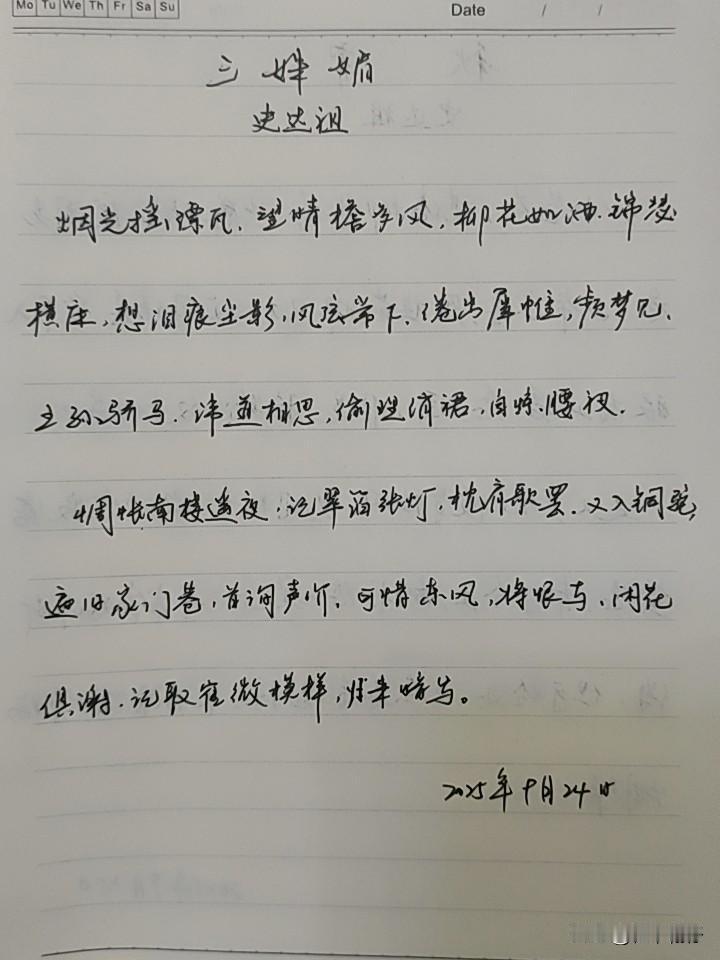 Mo Tu We Th Fr Sa Su
Date / /
三姝媚
史达祖
烟光摇缥瓦,望晴檐多风,柳花如洒.锦瑟
横床,想泪痕尘影,凤弦常下.倦出犀帷,频梦见,
王孙骄马.讳道相思,偷理绡裙,自惊腰衩.
惆怅南楼遥夜,记翠箔张灯,枕肩歌罢.又入铜驼,
遍旧家门巷,首询声价.可惜东风,将恨与、闲花
俱谢.记取崔徽模样,归来暗写。
2025年9月24日